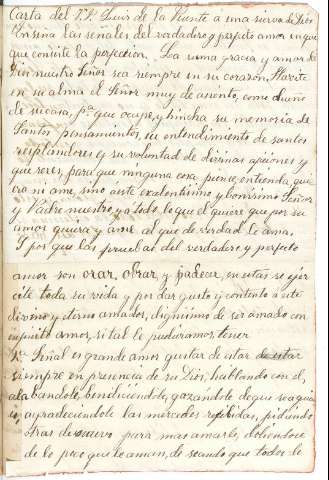 Carta del V. P. Luis de la Puente a una sierva de Dios
Enseña las señales del verdadero y perfeto amor en que
que consiste la perfeccion. La suma gracia y amor de
Dios nuestro Señor sea siempre en su corazon,
en su alma el Señor muy de asiento, como dueño
de su casa, pª que ocupe, y hincha su memoria de
Santos pensamientos, su entendimiento de santos
resplandores y su voluntad de divinas afeciones y
que seres, para que ninguna cosa piense, entienda, quie
era ni ame, sino a este exelentisimo y bonisimo Señor
y Padre nuestro, y a todo lo que el quiere que por su
amor quiera y ame al que de verdad le ama.
Y por que las pruebas del verdadero y perfeto
amor son orar, obrar, y padecer, en estas se ejer
cite toda su vida y por dar gusto y contento a este
divino y eterno amador, dignisimo de ser amado con
infinito amor, si tal le pudieramos tener
1ª Señal es grande amor gustar de estar de estar
siempre en presencia de su Dios, hablando con el,
alabandole, bendiciendole, gozandole de que sea quien
es, agradeciendole las mercedes rejibidas, pidiendo
otras de nuevo para mas amarle, doliendose
de lo poco que le aman, deseando que todos le